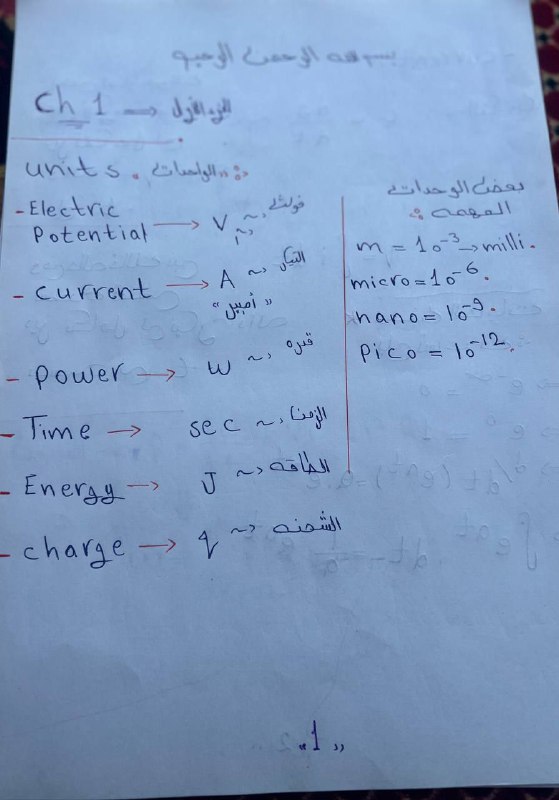 بسم الله الرحمن الرحيم
Ch 1 → الجزء الأول
units . "الواحدات" :
- Electric Potential → V ~ فولت
- Current → A ~ التيار
"أمبير"
- power → W ~ قدره
- Time → sec ~ الزمن
- Energy → J ~ الطاقه
- charge → q ~ الشحنه
بعض الوحدات
المهمه :
m = 10⁻³ → milli .
micro = 10⁻⁶ .
nano = 10⁻⁹ .
pico = 10⁻¹² .
"1"